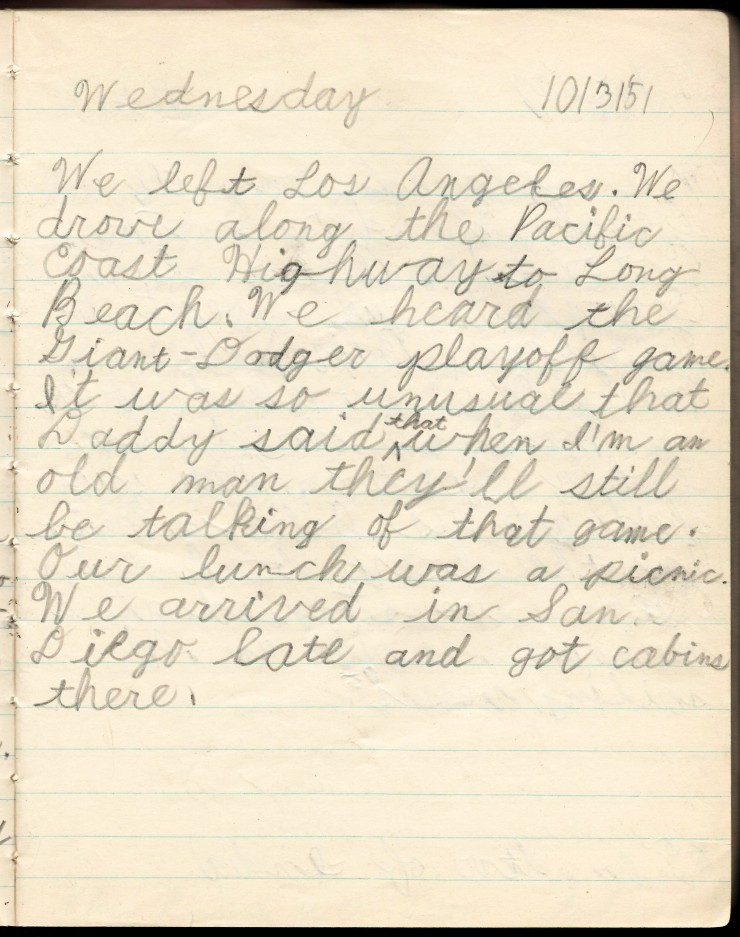 Wednesday 10/3/51
We left Los Angeles. We
drove along the Pacific
Coast Highway to Long
Beach. We heard the
Giant-Dodger playoff game.
It was so unusual that
Daddy said that when I'm an
old man they'll still
be talking of that game.
Our lunch was a picnic.
We arrived in San
Diego late and got cabins
there.